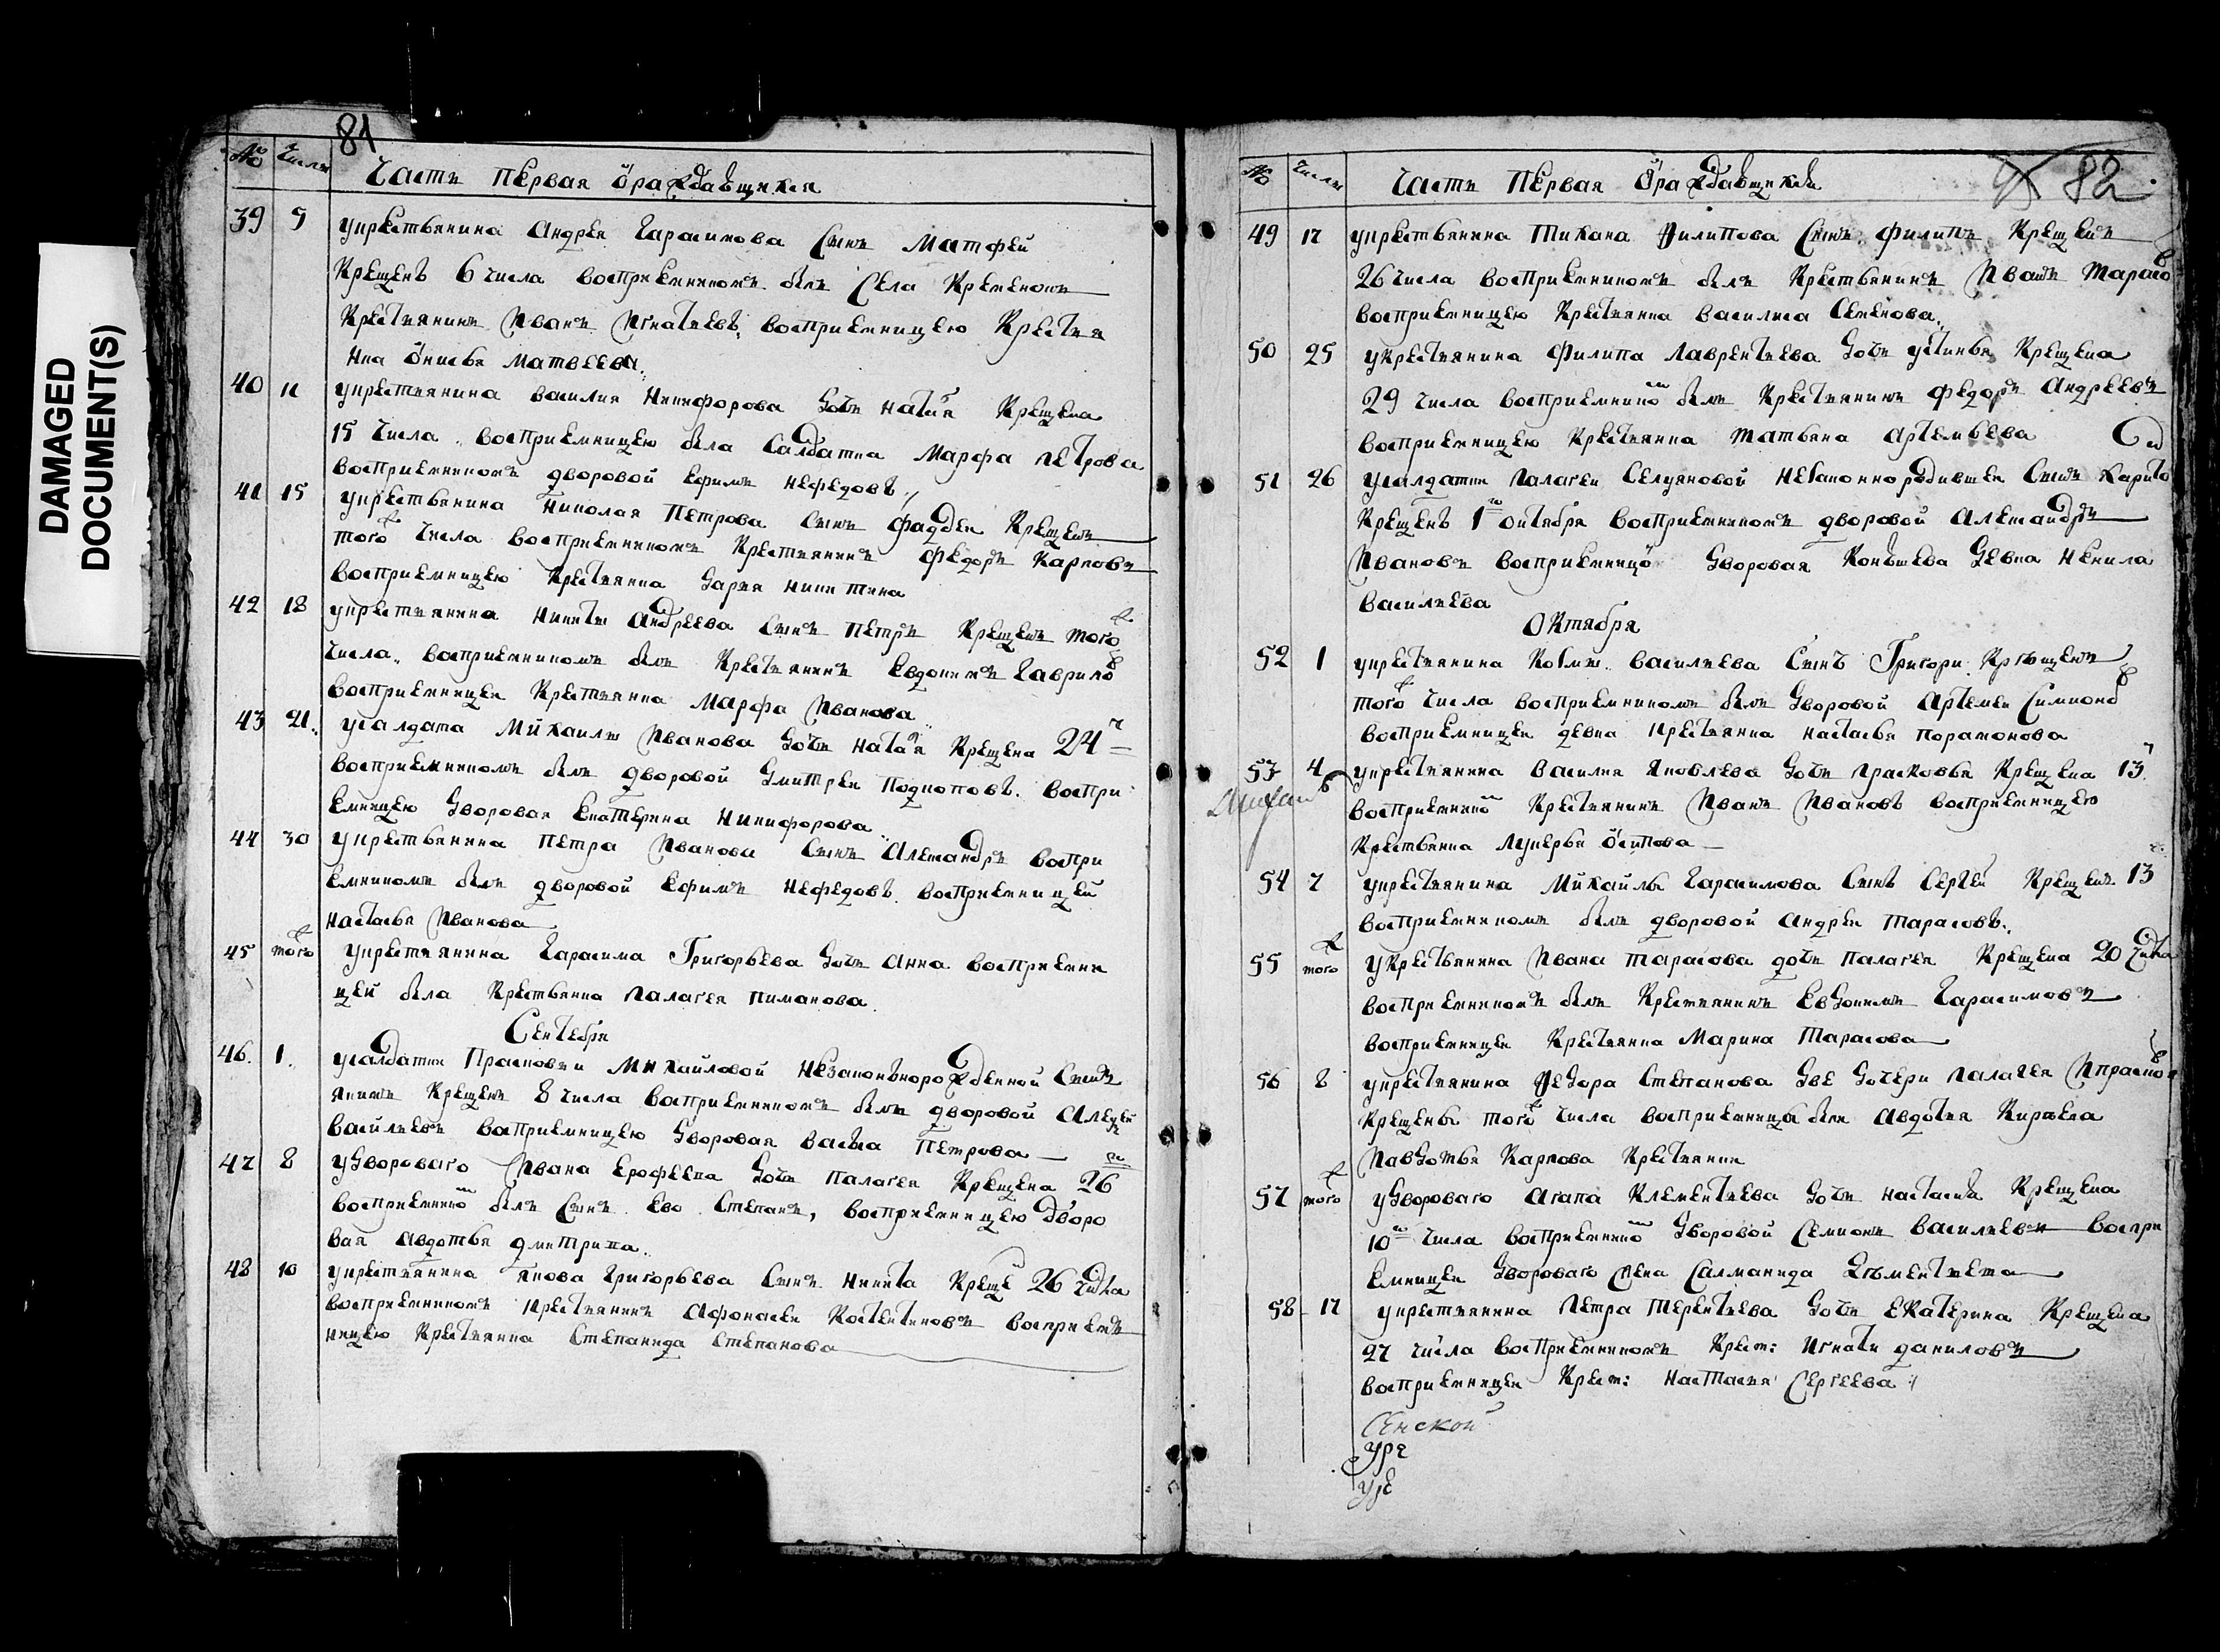 DAMAGED
DOCUMENT(S)
81
№ Числа Часть Первая ораждавщихся
39 5 укрестьянина Андрея Гарасимова Сынъ Матфей
Крещенъ 6 числа восприемникомъ былъ Села Кременокъ
Крестьянинъ Иванъ Игнатьевъ, восприемницею Крестья
нка Онисья Матвеева
40 11 укрестьянина Василия Никифорова дочь Наталя Крещена
15 числа восприемницею была Салдатка Марфа Петрова
восприемникомъ дворовой Ефимъ Нефедовъ
41 15 укрестьянина Николая Петрова сынъ Фаддеи Крещенъ
того числа восприемникомъ Крестьянинъ Федоръ Карповъ
восприемницею Крестьянка Дарья Никитина
42 18 укрестьянина Никиты Андреева сынъ Петръ Крещенъ того
числа восприемникомъ былъ Крестьянинъ Евдокимъ Гаврило
восприемницеи Крестьянка Марфа Иванова
43 21 усалдата Михаилы Иванова дочь Наталя Крещена 24
восприемникомъ былъ дворовой Дмитреи Подкоповъ. воспри
емницею Дворовая Екатерина Никифорова
44 30 укрестьянина Петра Иванова сынъ Александръ воспри
емникомъ былъ дворовой Ефимъ Нефедовъ восприемницей
Настасья Иванова
45 того укрестьянина Гарасима Григорьева дочь Анна восприемни
цей была Крестьянка Палагея Пиманова
Сентебря
46. 1. усалдатки Прасковьи Михаиловой Незаконнорожденной Сынъ
Якимъ Крещенъ 8 числа восприемникомъ былъ дворовой Алексей
Васильевъ восприемницею Дворовая Васса Петрова
47 8 удвороваго Ивана Ерофеева дочь Палагея Крещена 26
восприемнико былъ Сынъ Ево Степанъ, восприемницею дворо
вая Авдотья Дмитрива
48 10 укрестьянина Якова Григорьева Сынъ Никита Креще 26 числа
восприемникомъ Крестьянинъ Афонасеи Костентиновъ восприем
ницею Крестьянка Степанида Степанова
№ Числа Часть Первая Ораждавщихся 82
49 17 укрестьянина Тихана Филипова Сынъ Филипъ Крещенъ
26 числа восприемникомъ былъ Крестьянинъ Иванъ Тарасо
восприемницею Крестьянка Василиса Семенова
50 25 укрестьянина Филипа Лаврентьева дочь Устинья Крещена
29 числа восприемнико былъ Крестьянинъ Федоръ Андреевъ
восприемницею Крестьянка Татьяна Артемьева
51 26 усалдатки Палагеи Селуяновой Незаконнорадившеи Сынъ Харито
Крещенъ 1 октября восприемникомъ дворовой Александръ
Ивановъ восприемницо Дворовая Девка Ненила
Васильева
Октября
52 1 укрестьянина Козмы Васильева Сынъ Григори Крещенъ
того числа восприемникомъ былъ Дворовой Артемеи Симионо
восприемницеи девка крестьянка Настасья Порамонова
53 4 укрестьянина Василия Яковлева дочь Прасковья Крещена 13
восприемнико Крестьянинъ Иванъ Ивановъ восприемницею
Крестьянка Лукерья Осипова
54 7 укрестьянина Михаилы Гарасимова Сынъ Сергей Крещенъ 13
восприемникомъ былъ дворовой Андреи Тарасовъ
55 того Укрестьянина Ивана Тарасова дочь Палагея Крещена 20 числа
восприемникомъ былъ Крестьянинъ Евдокимъ Гарасимовъ
восприемницеи Крестьянка Марина Тарасова
56 8 укрестьянина Федора Степанова Две Дочери Палагея Ипрасков
Крещены того числа восприемницы были Авдотья
Иавдотья Карпова Крестьянки
57 того удвороваго Агапа Клементьева дочь Настасья Крещена
10 числа восприемнико Дворовой Семионъ Васильевъ воспри
емницеи Двороваго жена Салманида
58 17 укрестьянина Петра Терентьева дочь Екатерина Крещена
27 числа восприемникомъ Крест: Игнати Даниловъ
восприемницеи Крест: Настасья Сергеева
Сенской
Уре
Уре